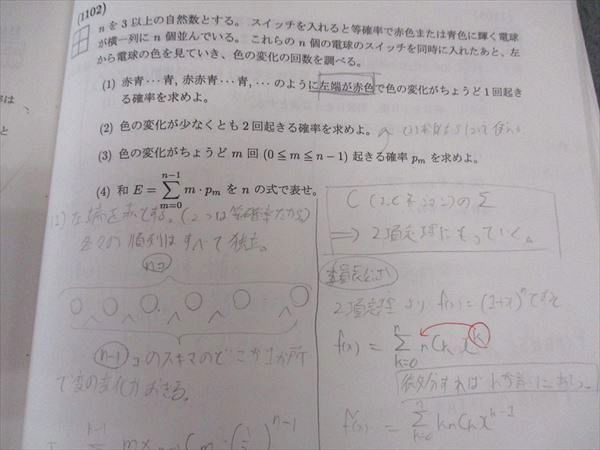 (1102)
nを3以上の自然数とする。スイッチを入れると等確率で赤色または青色に輝く電球
が横一列にn個並んでいる。これらのn個の電球のスイッチを同時に入れたあと、左
から電球の色を見ていき、色の変化の回数を調べる。
(1) 赤青…青, 赤赤青…青, …のように左端が赤色で色の変化がちょうど1回起き
る確率を求めよ。
(2) 色の変化が少なくとも2回起きる確率を求めよ。
(3) 色の変化がちょうどm回 (0≦m≦n−1) 起きる確率 pₘ を求めよ。
(4) 和 E = Σ_{m=0}^{n−1} m・pₘ を n の式で表せ。
左端を赤とする。(2つは等確率だから)
各々の順列はすべて独立。
nコ
n-1コのスキマのどこか1か所
で色の変化がおきる。
のΣ
⇒ 2項定理にもっていく。
2項定理より f(x) = (1+x)^n です
f(x) = Σ_{k=0}^{n} nCk x^k
微分すればkが前に
f'(x) = Σ_{k=0}^{n} k nCk x^{k-1}